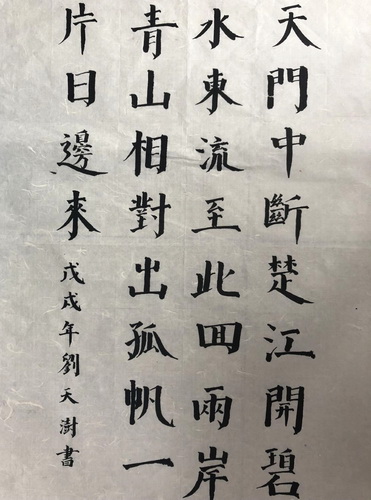 天門中斷楚江開碧
水東流至此回兩岸
青山相對出孤帆一
片日邊來
戊戌年劉天澍書